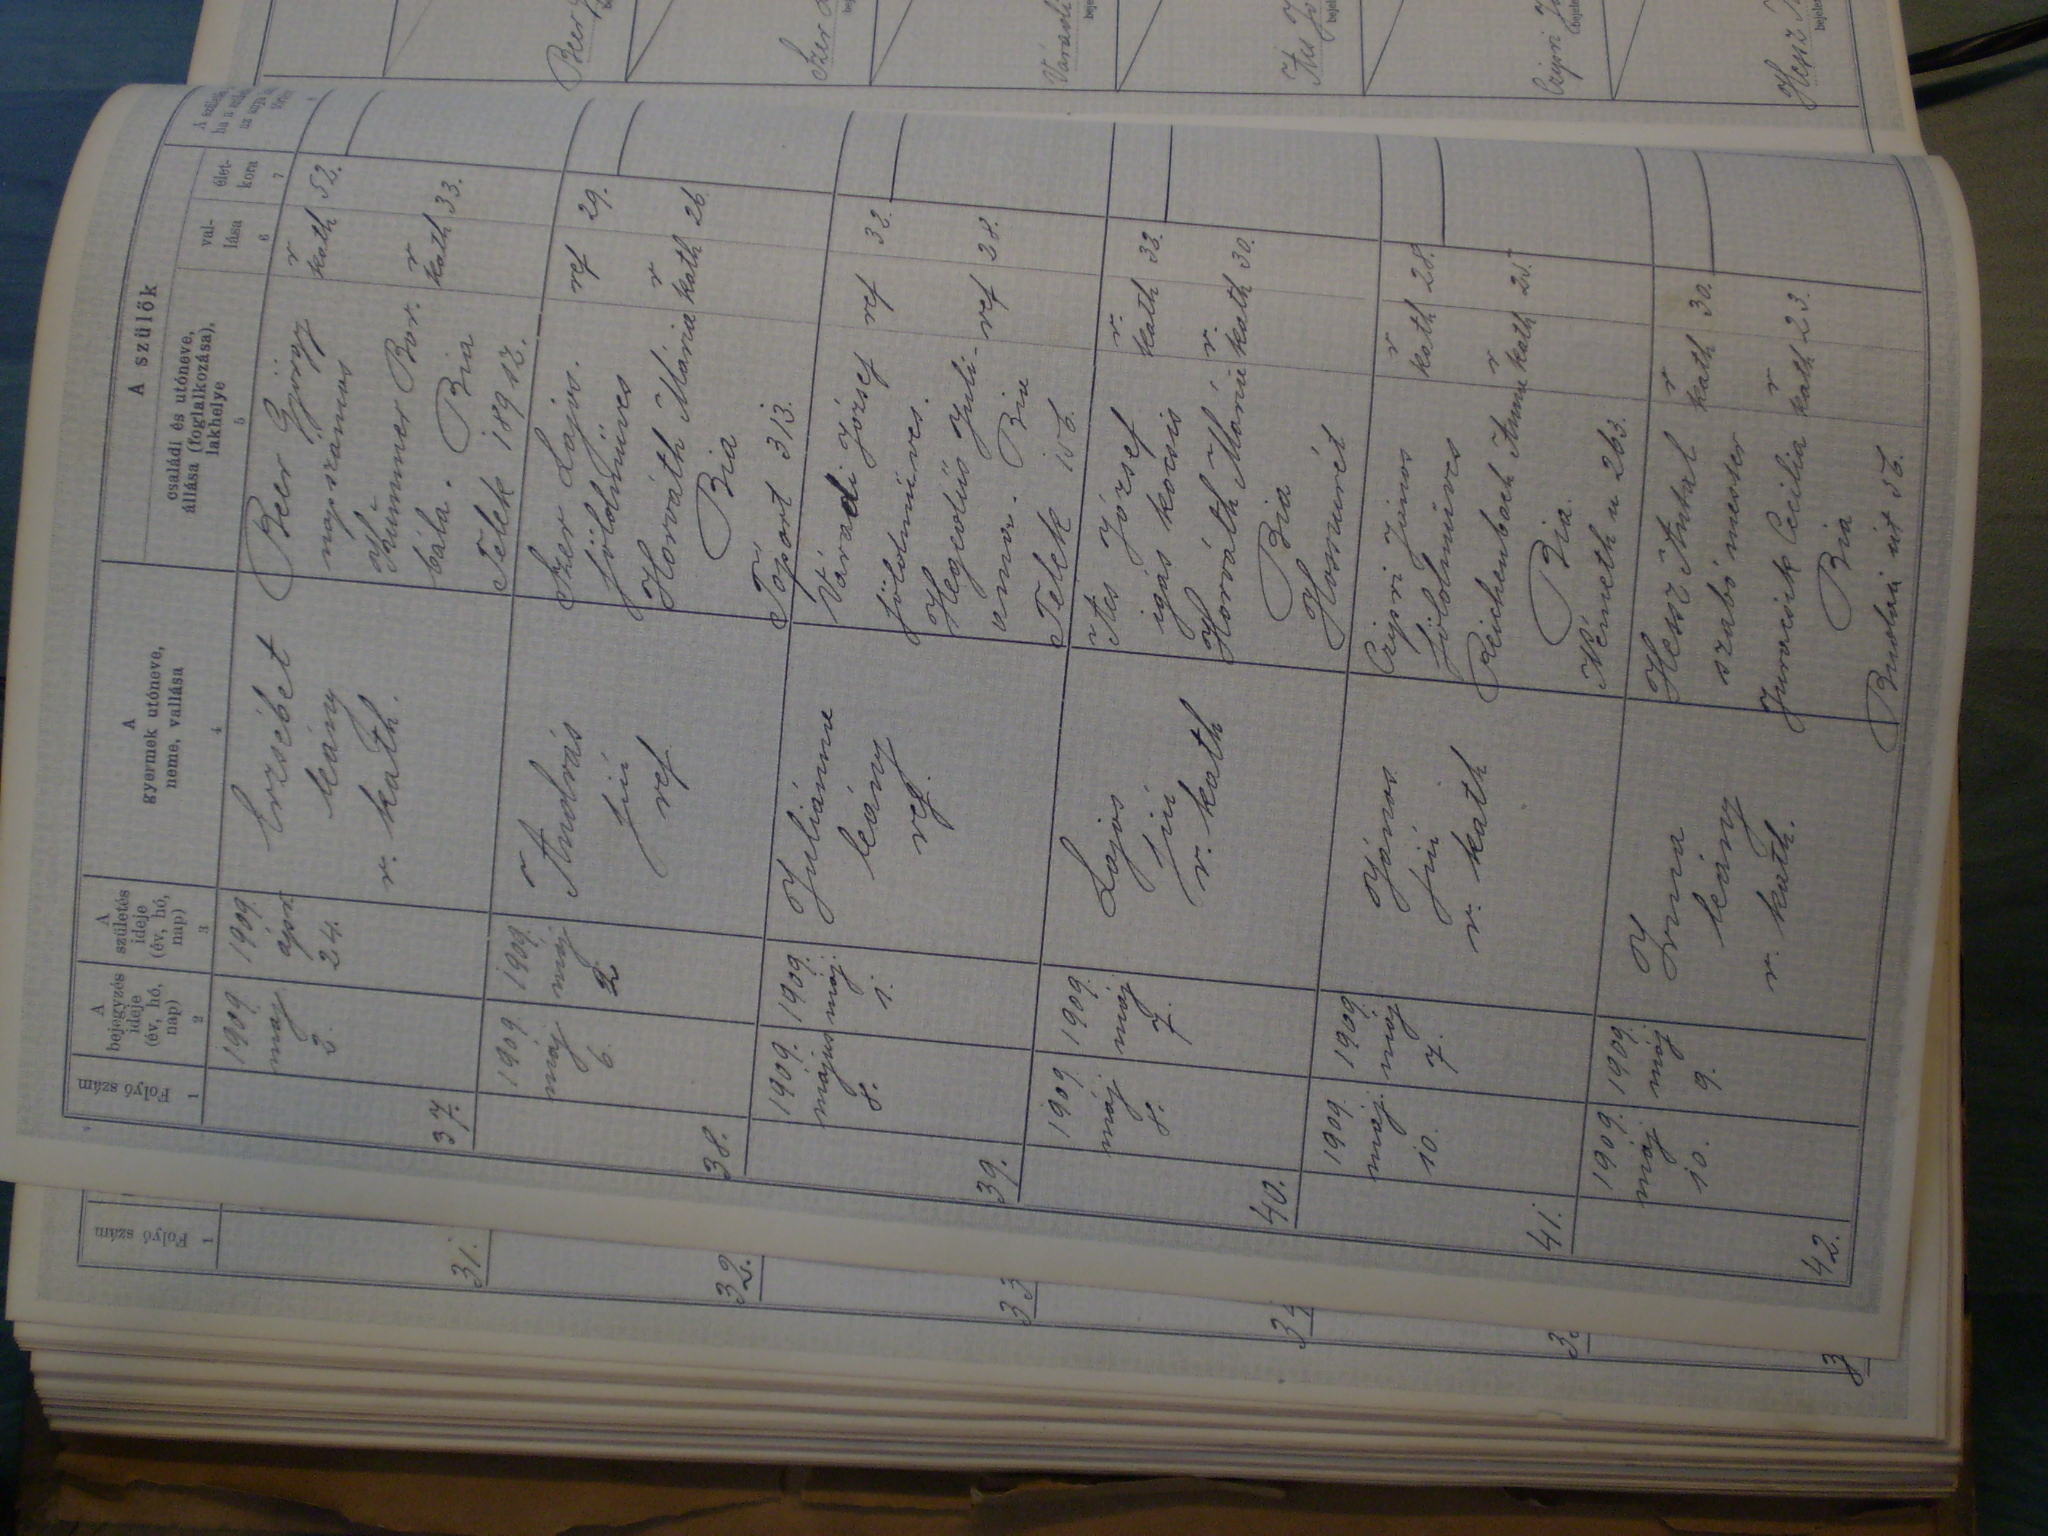 Folyó szám
1
A
bejegyzés
ideje
(év, hó,
nap)
2
A
születés
ideje
(év, hó,
nap)
3
A
gyermek utóneve,
neme, vallása
4
A szülők
családi és utóneve,
állása (foglalkozása),
lakhelye
5
val-
lása
6
élet-
kora
7
37.
1909.
máj.
3.
1909.
ápr.
24.
Erzsébet
leány
r. kath.
Beer György
napszámos
r
kath 52.
Kummer Bor.
bála. Bia
r
kath 33.
Telek 189 sz.
38.
1909.
máj.
6.
1909.
máj.
2.
András
fiú
ref
Szer Lajos.
földmüves
ref 29.
Horváth Mária
r
kath 26
Bia
Tóport 313.
39.
1909.
május
8.
1909.
máj.
1.
Juliánna
leány
ref.
Váradi József
földmüves.
ref 32.
Hegedüs Juli-
anna. Bia
ref 28.
Telek 156.
40.
1909.
máj.
8.
1909.
máj
7.
Lajos
fiú
r. kath
József
igás kocsis
r.
kath 33.
Horváth Mária
r.
kath 30.
Bia
Hosszurét
41.
1909.
máj.
10.
1909.
máj
7.
János
fiú
r. kath
Czipri János
földmüves
r
kath 28.
Reichenbach Anna
r
kath 25.
Bia.
Németh u 263.
42.
1909.
máj
10.
1909.
máj
9.
Irma
leány
r. kath.
Hesz Antal
szabó mester
r
kath 30.
Jurocsik Cecilia
r
kath 23.
Bia
Budai út 56.
Folyó szám
1
31.
32.
33
Beer
Szer
Váradi
Czipri
Hesz